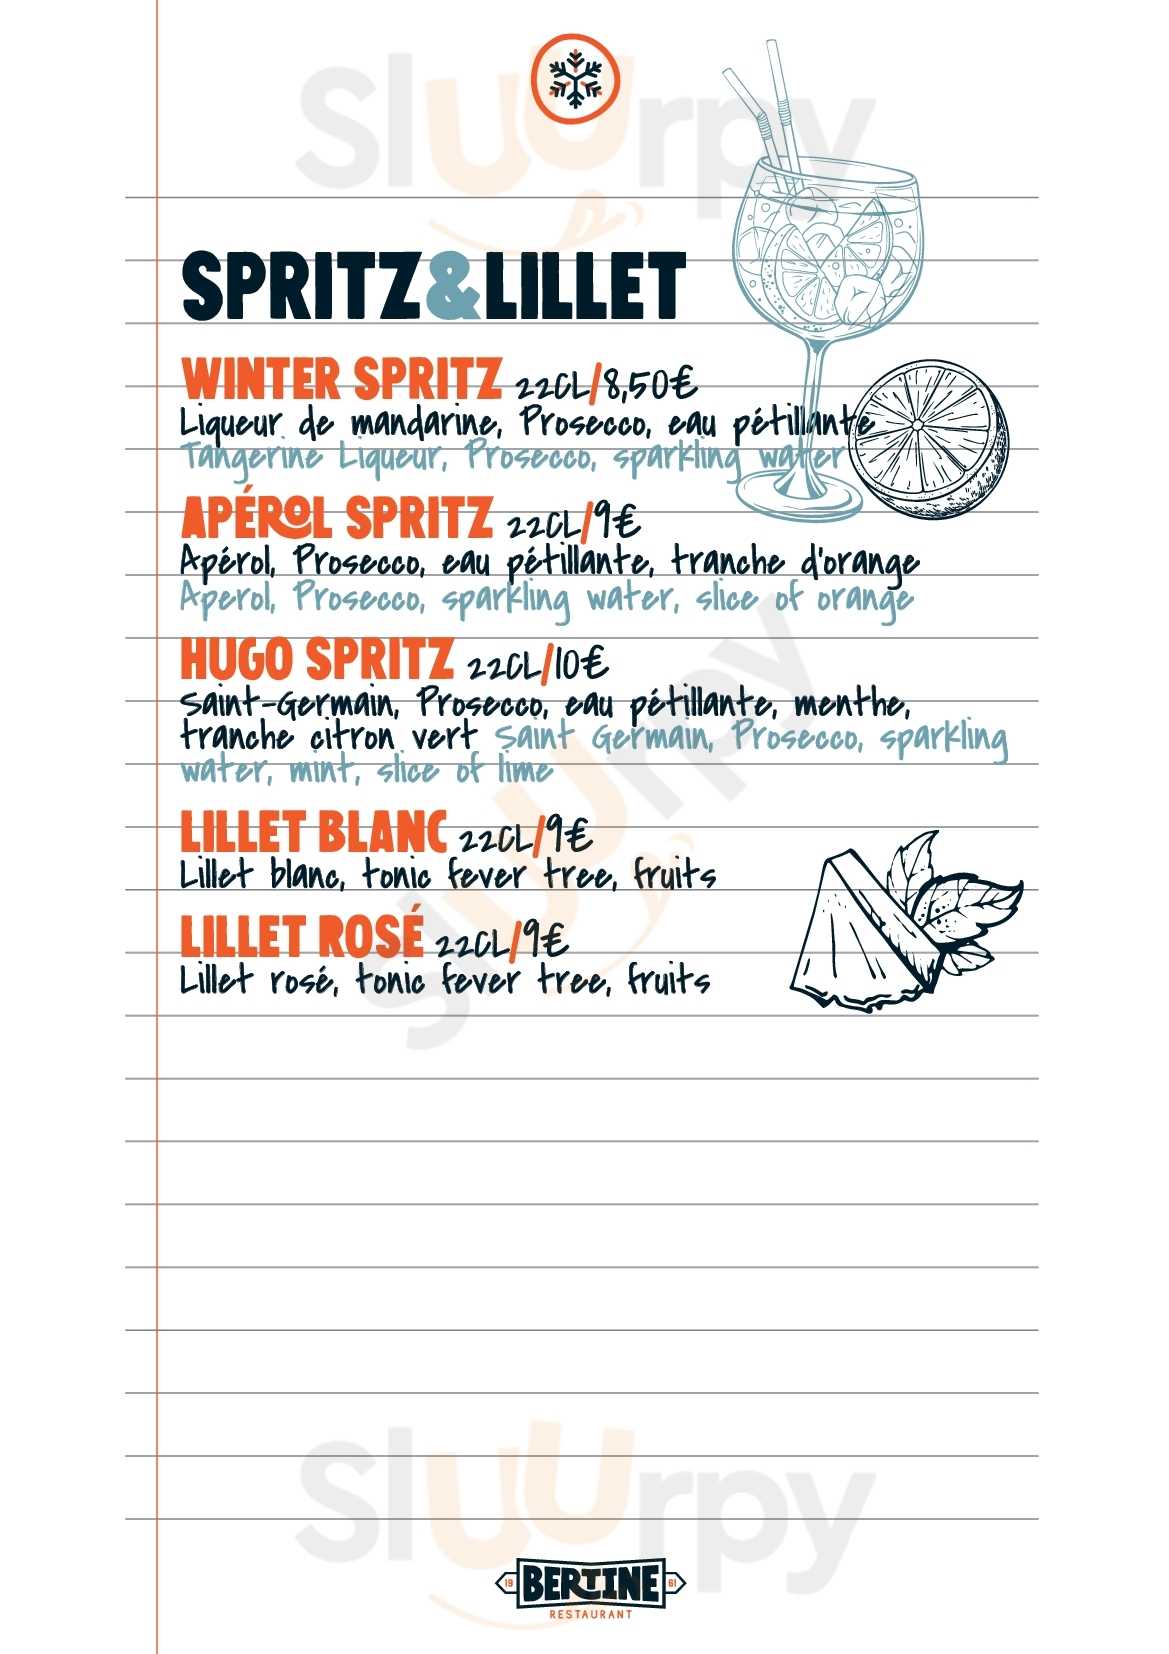 Sluurpy
SPRITZ&LILLET
WINTER SPRITZ 22CL/8,50€
Liqueur de mandarine, Prosecco, eau pétillante
Tangerine Liqueur, Prosecco, sparkling water
APÉROL SPRITZ 22CL/9€
Apérol, Prosecco, eau pétillante, tranche d'orange
Aperol, Prosecco, sparkling water, slice of orange
HUGO SPRITZ 22CL/10€
Saint-Germain, Prosecco, eau pétillante, menthe,
tranche citron vert Saint Germain, Prosecco, sparkling
water, mint, slice of lime
Sluurpy
LILLET BLANC 22CL/9€
Lillet blanc, tonic fever tree, fruits
LILLET ROSÉ 22CL/9€
Lillet rosé, tonic fever tree, fruits
Sluurpy
19 BERTINE 61
RESTAURANT